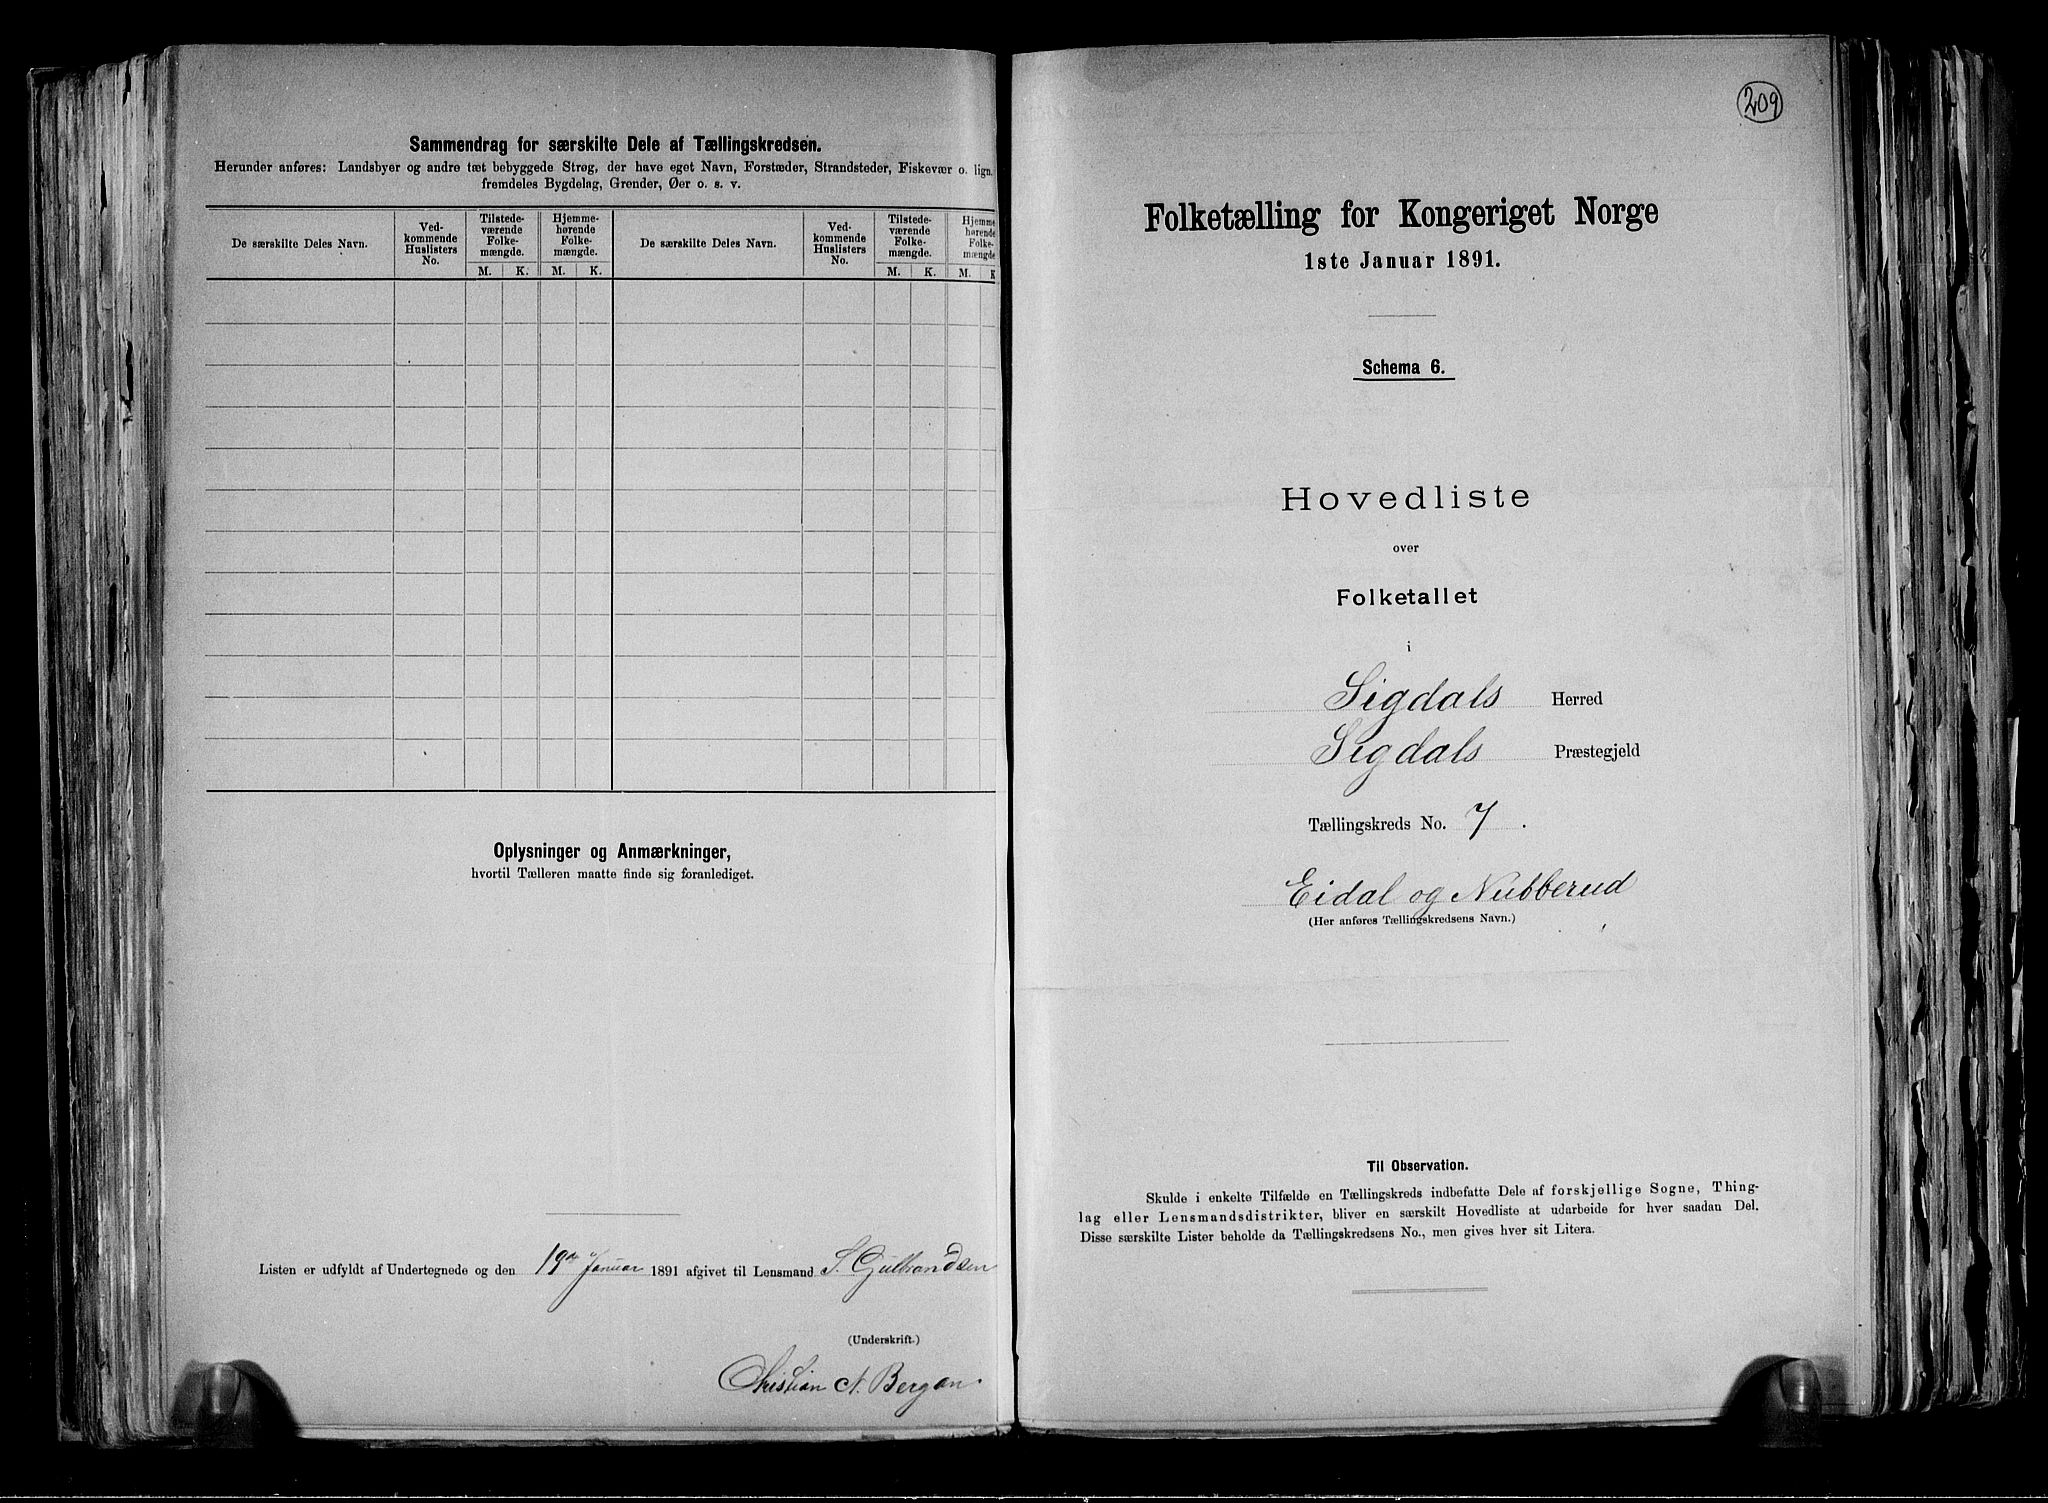 Sammendrag for særskilte Dele af Tællingskredsen.
Herunder anføres: Landsbyer og andre tæt bebyggede Strøg, der have eget Navn, Forstæder, Strandsteder, Fiskevær o. lign.
fremdeles Bygdelag, Grender, Øer o. s. v.
De særskilte Deles Navn.
Ved-
kommende
Huslisters
No.
Tilstede-
værende
Folke-
mængde.
Hjemme-
hørende
Folke-
mængde.
De særskilte Deles Navn.
Ved-
kommende
Huslisters
No.
Tilstede-
værende
Folke-
mængde.
Hjemme
hørende
Folke-
mængde
M. K. M. K. M. K. M. K
Oplysninger og Anmærkninger,
hvortil Tælleren maatte finde sig foranlediget.
Listen er udfyldt af Undertegnede og den 19de Januar 1891 afgivet til Lensmand S. Gulbrandsen
(Underskrift.)
Christian N. Bergan.
209
Folketælling for Kongeriget Norge
1ste Januar 1891.
Schema 6.
Hovedliste
over
Folketallet
i
Sigdals Herred
Sigdals Præstegjeld
Tællingskreds No. 7.
Eidal og Nubberud
(Her anføres Tællingskredsens Navn.)
Til Observation.
Skulde i enkelte Tilfælde en Tællingskreds indbefatte Dele af forskjellige Sogne, Thing-
lag eller Lensmandsdistrikter, bliver en særskilt Hovedliste at udarbeide for hver saadan Del.
Disse særskilte Lister beholde da Tællingskredsens No., men gives hver sit Litera.